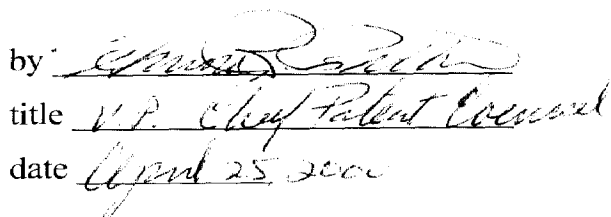 by
title V.P. Chief Patent Counsel
date April 25, 2000